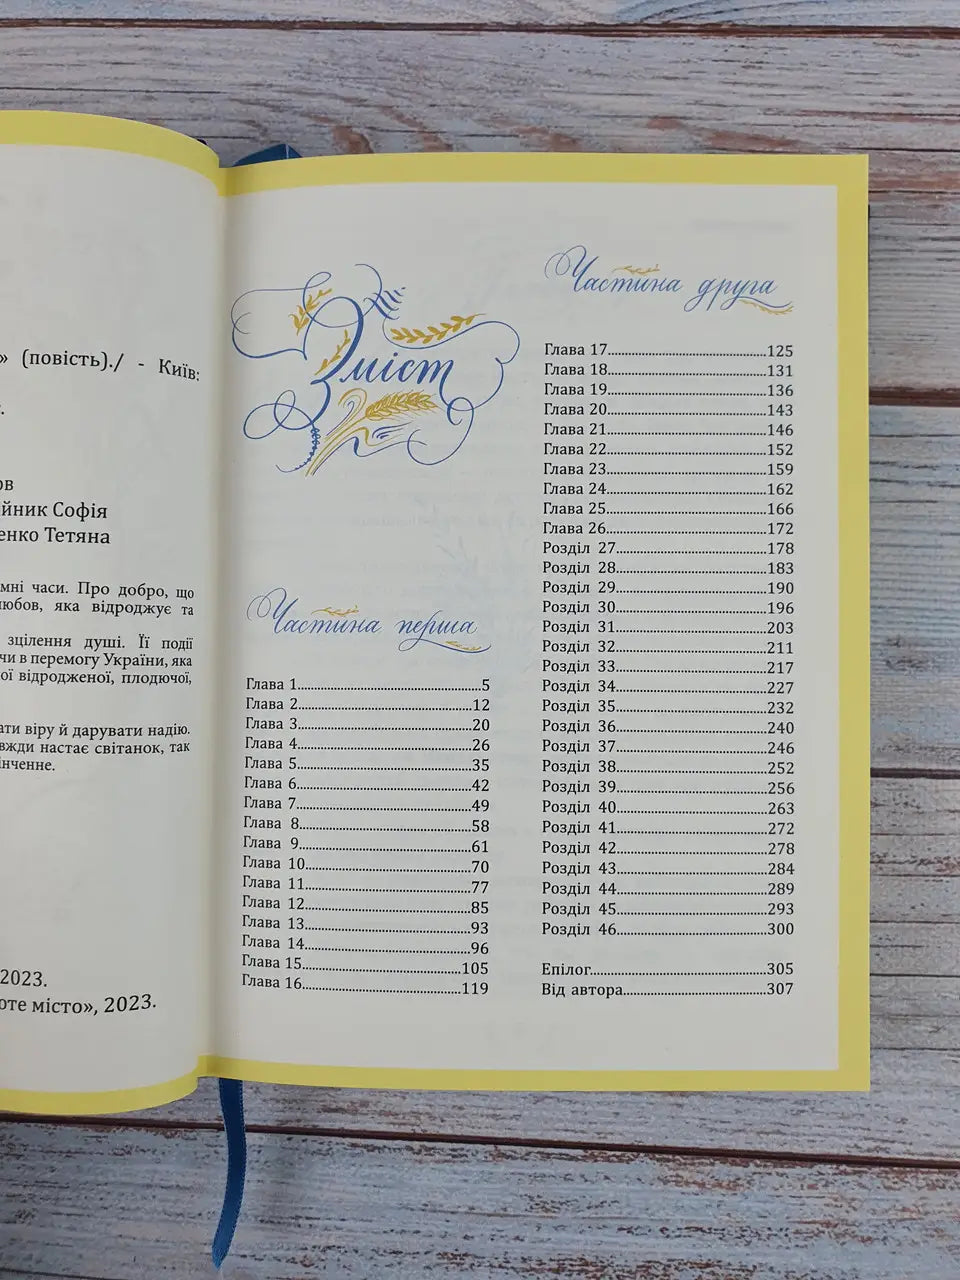 » (повість)./ - Київ:
ов
йник Софія
енко Тетяна
мні часи. Про добро, що
любов, яка відроджує та
зцілення душі. Її події
чи в перемогу України, яка
ої відродженої, плодючої,
ати віру й дарувати надію.
вжди настає світанок, так
інченне.
2023.
оте місто», 2023.
Зміст
Частина перша
Глава 1...5
Глава 2...12
Глава 3...20
Глава 4...26
Глава 5...35
Глава 6...42
Глава 7...49
Глава 8...58
Глава 9...61
Глава 10...70
Глава 11...77
Глава 12...85
Глава 13...93
Глава 14...96
Глава 15...105
Глава 16...119
Частина друга
Глава 17...125
Глава 18...131
Глава 19...136
Глава 20...143
Глава 21...146
Глава 22...152
Глава 23...159
Глава 24...162
Глава 25...166
Глава 26...172
Розділ 27...178
Розділ 28...183
Розділ 29...190
Розділ 30...196
Розділ 31...203
Розділ 32...211
Розділ 33...217
Розділ 34...227
Розділ 35...232
Розділ 36...240
Розділ 37...246
Розділ 38...252
Розділ 39...256
Розділ 40...263
Розділ 41...272
Розділ 42...278
Розділ 43...284
Розділ 44...289
Розділ 45...293
Розділ 46...300
Епілог...305
Від автора...307